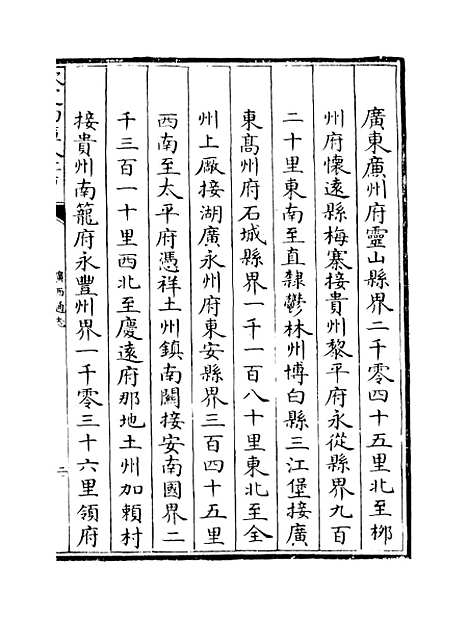 廣東廣州府靈山縣界二千零四十五里北至柳
州府懷遠縣梅寨接貴州黎平府永從縣界九百
二十里東南至直隸鬱林州博白縣三江堡接廣
東髙州府石城縣界一千一百八十里東北至全
州上厰接湖廣永州府東安縣界三百四十五里
西南至太平府憑祥土州鎮南關接安南國界二
千三百一十里西北至慶遠府那地土州加賴村
接貴州南籠府永豐州界一千零三十六里領府
廣西通志
二